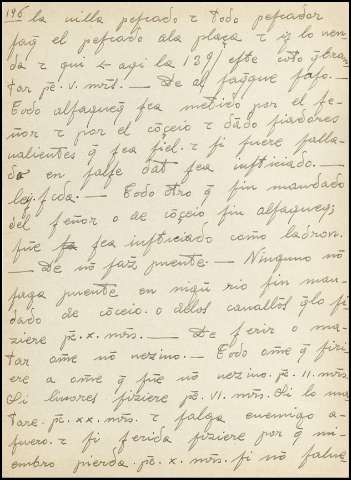 196 la villa pescado τ todo pescador
faꝫ el pescado ala plaça τ
da τ qui
tar pē. v. mr̄s. — De al faq̄que
Todo alfaqueq̄ sea metido por el se-
ñor τ por el cōçeio τ dādo fiadores
ualientes q̄ sea fiel. τ si fuere falla-
do en falsedat sea iusticiado. —
ley. — Todo otro q̄ sin mandado
del señor o de cōçeio sin alfaqueq̄;
fūe sea iusticiado como ladron.
— De nō faꝫ puente. — Ninguno nō
faga puente en nigū rio sin man-
dado de cōceio. o dellos cauallōs q̄ lo fi-
ziere pē. x. mr̄s. — De ferir o ma-
tar ome nō vezino. — Todo ome q̄ firi-
ere a ome q̄ fūe nō vezino. pē. II. mr̄s.
Si liuores fiziere pē. VI. mr̄s. Si lo ma
tare. pē. xx. mr̄s. τ salga enemigo a-
fuero. τ si ferida fiziere por q̄ mi-
embro pierda. pē. x. mr̄s. si nō